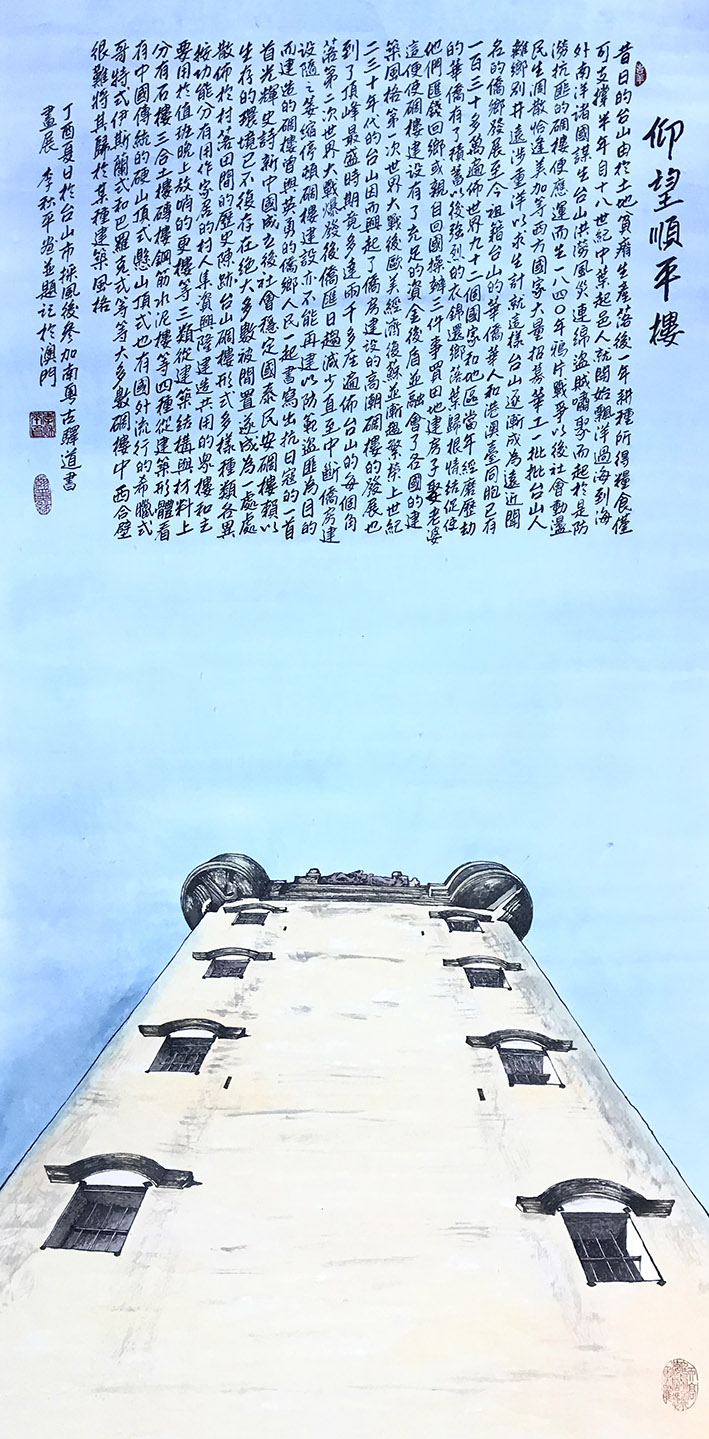 仰望順平樓
昔日的台山由於土地貧瘠生產落後一年耕種所得糧食僅
可支撐半年自十八世紀中葉起邑人就開始飄洋過海到海
外南洋諸國謀生台山洪澇風災連綿盜賊嘯聚而起於是防
澇抗匪的碉樓便應運而生一八四〇年鴉片戰爭以後社會動盪
民生凋敝恰逢美加等西方國家大量招募華工一批批台山人
離鄉別井遠涉重洋以求生計就這樣台山逐漸成為遠近聞
名的僑鄉發展至今祖籍台山的華僑華人和港澳臺同胞已有
一百三十多萬遍佈世界九十二個國家和地區當年經磨歷劫
的華僑有了積蓄以後強烈的衣錦還鄉落葉歸根情結促使
他們匯錢回鄉或親自回國操辦三件事買田地建房子娶老婆
這便使碉樓建設有了充足的資金後盾並融會了各國的建
築風格第一次世界大戰後歐美經濟復蘇並漸趨繁榮上世紀
二三十年代的台山因而興起了僑房建設的高潮碉樓的發展也
到了頂峰最盛時期竟多達兩千多座遍佈台山的每個角
落第二次世界大戰爆發後僑匯日趨減少直至中斷僑房建
設隨之萎縮停頓碉樓建設亦不能再建以防範盜匪為目的
而建造的碉樓曾與英勇的僑鄉人民一起書寫出抗日寇的一首
首光輝史詩新中國成立後社會穩定國泰民安碉樓賴以
生存的環境已不復存在絕大多數被閒置遂成為一處處
散佈於村落田間的歷史陳跡台山碉樓形式多樣種類各異
按功能分有用作家居的村人集資興隆建造共用的眾樓和主
要用於值班晚上放哨的更樓等三類從建築結構與材料上
分有石樓三合土樓磚樓鋼筋水泥樓等四種從建築形體看
有中國傳統的硬山頂式懸山頂式也有國外流行的希臘式
哥特式伊斯蘭式和巴羅克式等等大多數碉樓中西合璧
很難將其歸於某種建築風格
丁酉夏日於台山市採風後參加南粵古驛道書
畫展 李秋平畫並題記於澳門